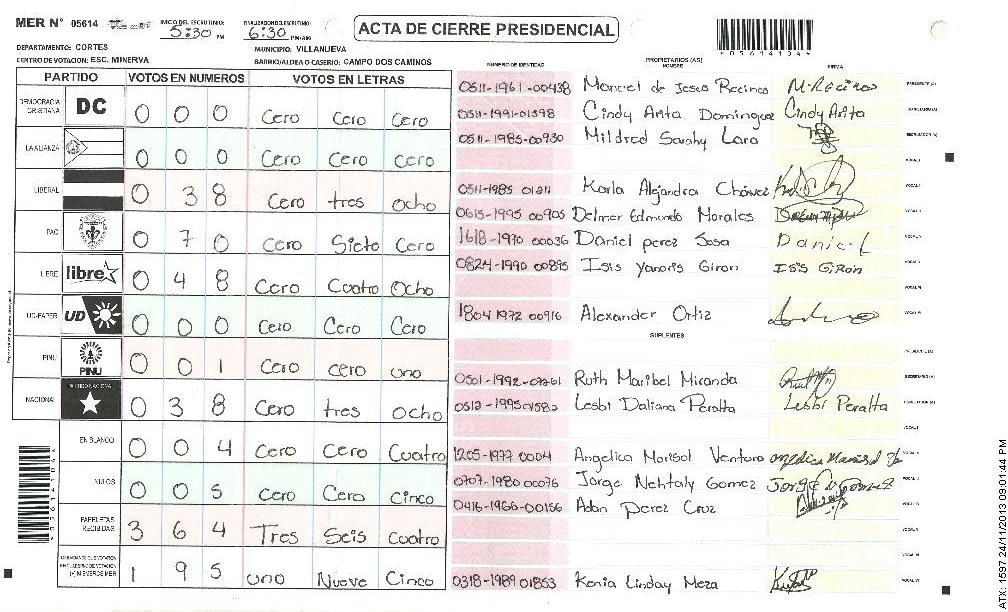 MER N° 05614
INICIO DEL ESCRUTINIO: 5:30 PM
FINALIZACION DEL ESCRUTINIO: 6:30 PM/AM
ACTA DE CIERRE PRESIDENCIAL
05614104
DEPARTAMENTO: CORTES
MUNICIPIO: VILLANUEVA
CENTRO DE VOTACION: ESC. MINERVA
BARRIO/ALDEA O CASERIO: CAMPO DOS CAMINOS
PARTIDO VOTOS EN NUMEROS VOTOS EN LETRAS
NUMERO DE IDENTIDAD PROPIETARIOS (AS) NOMBRE FIRMA
DEMOCRACIA CRISTIANA DC 0 0 0 Cero Cero Cero
LA ALIANZA 0 0 0 Cero Cero Cero
LIBERAL 0 3 8 Cero tres ocho
PAC 0 7 0 Cero Siete Cero
LIBRE libre 0 4 8 Cero Cuatro Ocho
UD-FAPER UD 0 0 0 Cero Cero Cero
PINU PINU 0 0 1 Cero cero uno
NACIONAL PARTIDO NACIONAL 0 3 8 Cero tres ocho
EN BLANCO 0 0 4 Cero Cero Cuatro
NULOS 0 0 5 Cero Cero Cinco
PAPELETAS RECIBIDAS 3 6 4 Tres Seis Cuatro
CIUDADANOS QUE VOTARON EN CUADERNO DE VOTACION (+) MIEMBROS MER 1 9 5 uno Nueve Cinco
0511-1961-00438 Manuel de Jesus Recinos M. Recinos PRESIDENTE (A)
0511-1991-01398 Cindy Arita Dominguez Cindy Arita SECRETARIO (A)
0511-1985-00930 Mildred Sarahy Lara ESCRUTADOR (A)
VOCAL I
0511-1985 01211 Karla Alejandra Chávez VOCAL II
0615-1995 00905 Delmer Edmundo Morales
1618-1990 00036 Daniel perez Sosa Daniel
0824-1990 00895 Isis Yanoris Giron Isis Giron
1804 1972 00916 Alexander Ortiz
SUPLENTES
PRESIDENTE (A)
0501-1992-07261 Ruth Maribel Miranda SECRETARIO (A)
0512-1995 01582 Lesbi Daliana Peralta Lesbi Peralta ESCRUTADOR (A)
1205-1977 0004 Angelica Marisol Ventura
0907-1980 00076 Jorge Nehtaly Gomez
0416-1966-00156 Adan Perez Cruz
0318-1989 01853 Kenia Linday Meza
ATX: 1597 24/11/2013 09:01:44 PM